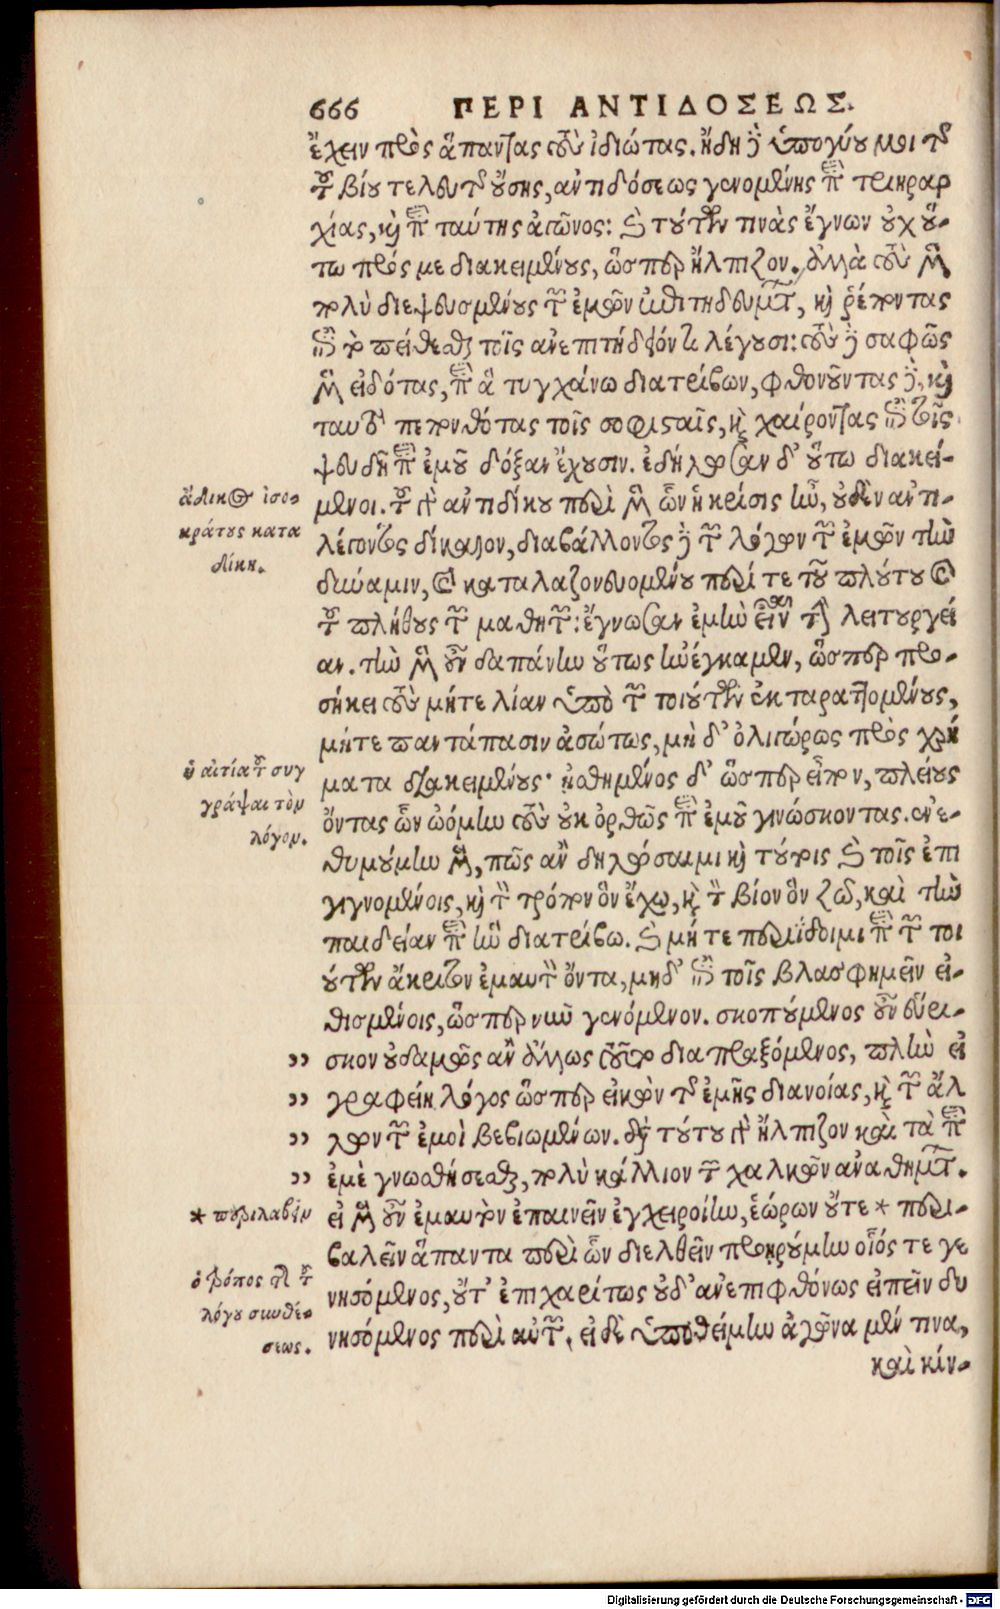 666 ΠΕΡΙ ΑΝΤΙΔΟΣΕΩΣ.
ἔχειν πρὸς ἅπαντας τοὺς ἰδιώτας. ἤδη δὲ ὑπογύου μοι τῆς
τοῦ βίου τελευτῆς οὔσης, ἀντιδόσεως γενομένης περὶ τριηραρ
χίας, καὶ περὶ ταύτης ἀγῶνος: καὶ τούτων τινὰς ἔγνων οὐχ οὕ-
τω πρός με διακειμένους, ὥσπερ ἤλπιζον. ἀλλὰ τοὺς μὲν
πολὺ διεψευσμένους τῶν ἐμῶν ἐπιτηδευμάτων, καὶ ῥέποντας
ἐπὶ τὸ πείθεσθαι τοῖς ἀνεπιτήδειόν τι λέγουσι: τοὺς δὲ σαφῶς
μὲν εἰδότας, περὶ ἃ τυγχάνω διατρίβων, φθονοῦντας δὲ, καὶ
ταυτὸ πεπονθότας τοῖς σοφισταῖς, καὶ χαίροντας ἐπὶ τοῖς
ψευδῆ περὶ ἐμοῦ δόξαν ἔχουσιν. ἐδήλωσαν δ' οὕτω διακεί-
μενοι. τοῦ γὰρ ἀντιδίκου περὶ μὲν ὧν ἡ κρίσις ἦν, οὐδὲν ἀντι-
λέγοντος δίκαιον, διαβάλλοντος δὲ τῶν λόγων τῶν ἐμῶν τὴν
δύναμιν, καὶ καταλαζονευομένου περί τε τοῦ πλούτου καὶ
τοῦ πλήθους τῶν μαθητῶν: ἔγνωσαν ἐμὴν εἶναι τὴν λειτουργεί
αν. τὴν μὲν οὖν δαπάνην οὕτως ἠνέγκαμεν, ὥσπερ προ-
σήκει τοὺς μήτε λίαν ὑπὸ τῶν τοιούτων ἐκταραττομένους,
μήτε παντάπασιν ἀσώτως, μὴ δ' ὀλιγώρως πρὸς χρή
ματα διακειμένους· ᾐσθημένος δ' ὥσπερ εἶπον, πλείους
ὄντας ὧν ᾠόμην τοὺς οὐκ ὀρθῶς περὶ ἐμοῦ γινώσκοντας. ἐνε-
θυμούμην μὲν, πῶς ἂν δηλώσαιμι καὶ τούτοις καὶ τοῖς ἐπι
γιγνομένοις, καὶ τὸν τρόπον ὃν ἔχω, καὶ τὸν βίον ὃν ζῶ, καὶ τὴν
παιδείαν περὶ ἣν διατρίβω. καὶ μήτε περιΐδοιμι περὶ τῶν τοι
ούτων ἄκριτον ἐμαυτὸν ὄντα, μηδ' ἐπὶ τοῖς βλασφημεῖν εἰ-
θισμένοις, ὥσπερ νῦν γενόμενον. σκοπούμενος οὖν εὕρι-
„ σκον οὐδαμῶς ἂν ἄλλως τοῦτο διαπραξόμενος, πλὴν εἰ
„ γραφείη λόγος ὥσπερ εἰκὼν τῆς ἐμῆς διανοίας, καὶ τῶν ἄλ
„ λων τῶν ἐμοὶ βεβιωμένων. διὰ τούτου γὰρ ἤλπιζον καὶ τὰ περὶ
„ ἐμὲ γνωσθήσεσθαι, πολὺ κάλλιον τῶν χαλκῶν ἀναθημάτων.
εἰ μὲν οὖν ἐμαυτὸν ἐπαινεῖν ἐγχειροίην, ἑώρων οὔτε * περι-
βαλεῖν ἅπαντα περὶ ὧν διελθεῖν προῃρούμην οἷός τε γε
νησόμενος, οὔτ' ἐπιχαρίτως οὐδ' ἀνεπιφθόνως εἰπεῖν δυ
νησόμενος περὶ αὐτῶν. εἰ δὲ ὑποθείμην ἀγῶνα μέν τινα,
καὶ κίν-
ἄδικος ἰσο-
κράτους κατα
δίκη.
ἡ αἰτία τοῦ συγ
γράψαι τὸν
λόγον.
* περιλαβεῖν
ὁ τρόπος τῆς τοῦ
λόγου συνθέ-
σεως.
Digitalisierung gefördert durch die Deutsche Forschungsgemeinschaft - DFG